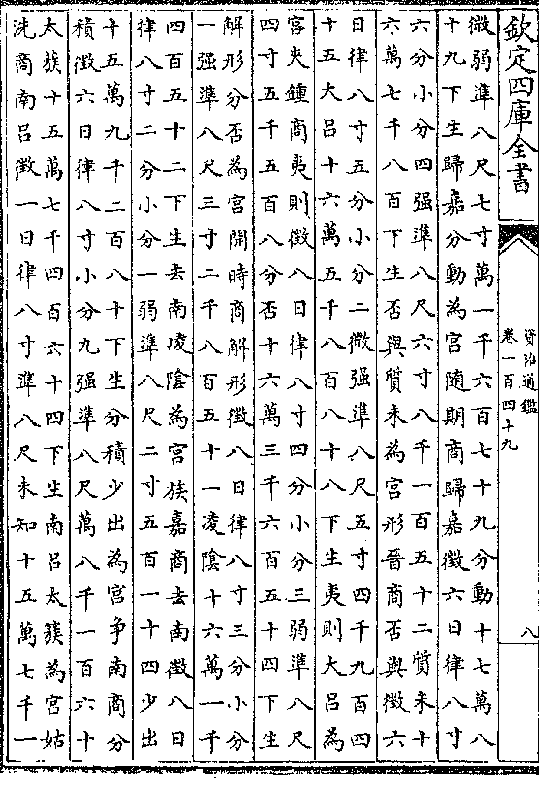 欽定四庫全書
資治通鑑
卷一百四十九
八
微弱準八尺七寸萬一千六百七十九分動十七萬八
十九下生歸嘉分動為宮隨期商歸嘉徵六日律八寸
六分小分四强準八尺六寸八千一百五十二質未十
六萬七千八百下生否與質未為宮形晉商否與徵六
日律八寸五分小分二微强準八尺五寸四千九百四
十五大呂十六萬五千八百八十八下生夷則大呂為
宮夾鍾商夷則徵八日律八寸四分小分三弱準八尺
四寸五千五百八分否十六萬三千六百五十四下生
解形分否為宮開時商解形徵八日律八寸三分小分
一强準八尺三寸二千八百五十一凌陰十六萬一千
四百五十二下生去南凌陰為宮族嘉商去南徵八日
律八寸二分小分一弱準八尺二寸五百一十四少出
十五萬九千二百八十下生分積少出為宮争南商分
積徵六日律八寸小分九强準八尺萬八千一百六十
太簇十五萬七千四百六十四下生南呂太簇為宮姑
洗商南呂徵一日律八寸準八尺未知十五萬七千一